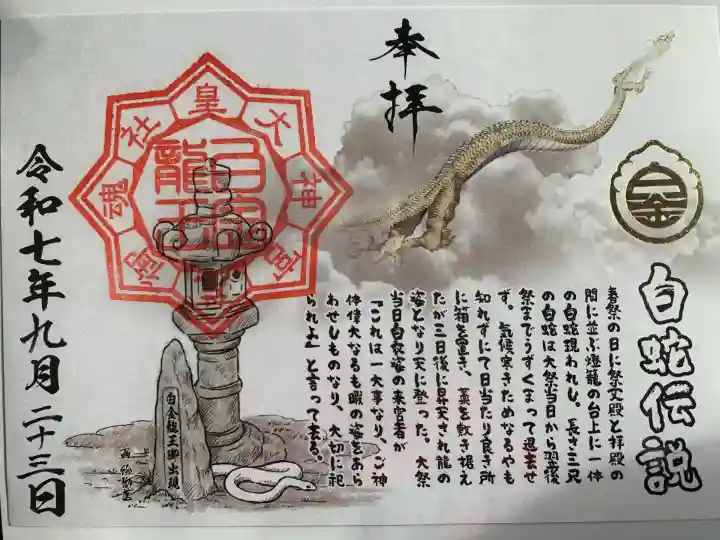 奉拝
白金
白蛇伝説
春祭の日に祭文殿と拝殿の
間に並ぶ燈籠の台上に一体
の白蛇現われし。長さ三尺
の白蛇は大祭当日から翌後
祭までうずくまって退去せ
ず。気候寒きためなるやも
知れずにて日当たり良き所
に箱を置き、藁を敷き据え
たが三日後に昇天され龍の
姿となり天に登った。大祭
当日白衣姿の来宮者が
「これは一大事なり、ご神
体偉大なるも暇の姿をあら
わせしものなり、大切に祀
られよ」と言って去る。
大神宮
皇
御魂社
龍王
白金龍王御出現
令和七年九月二十三日